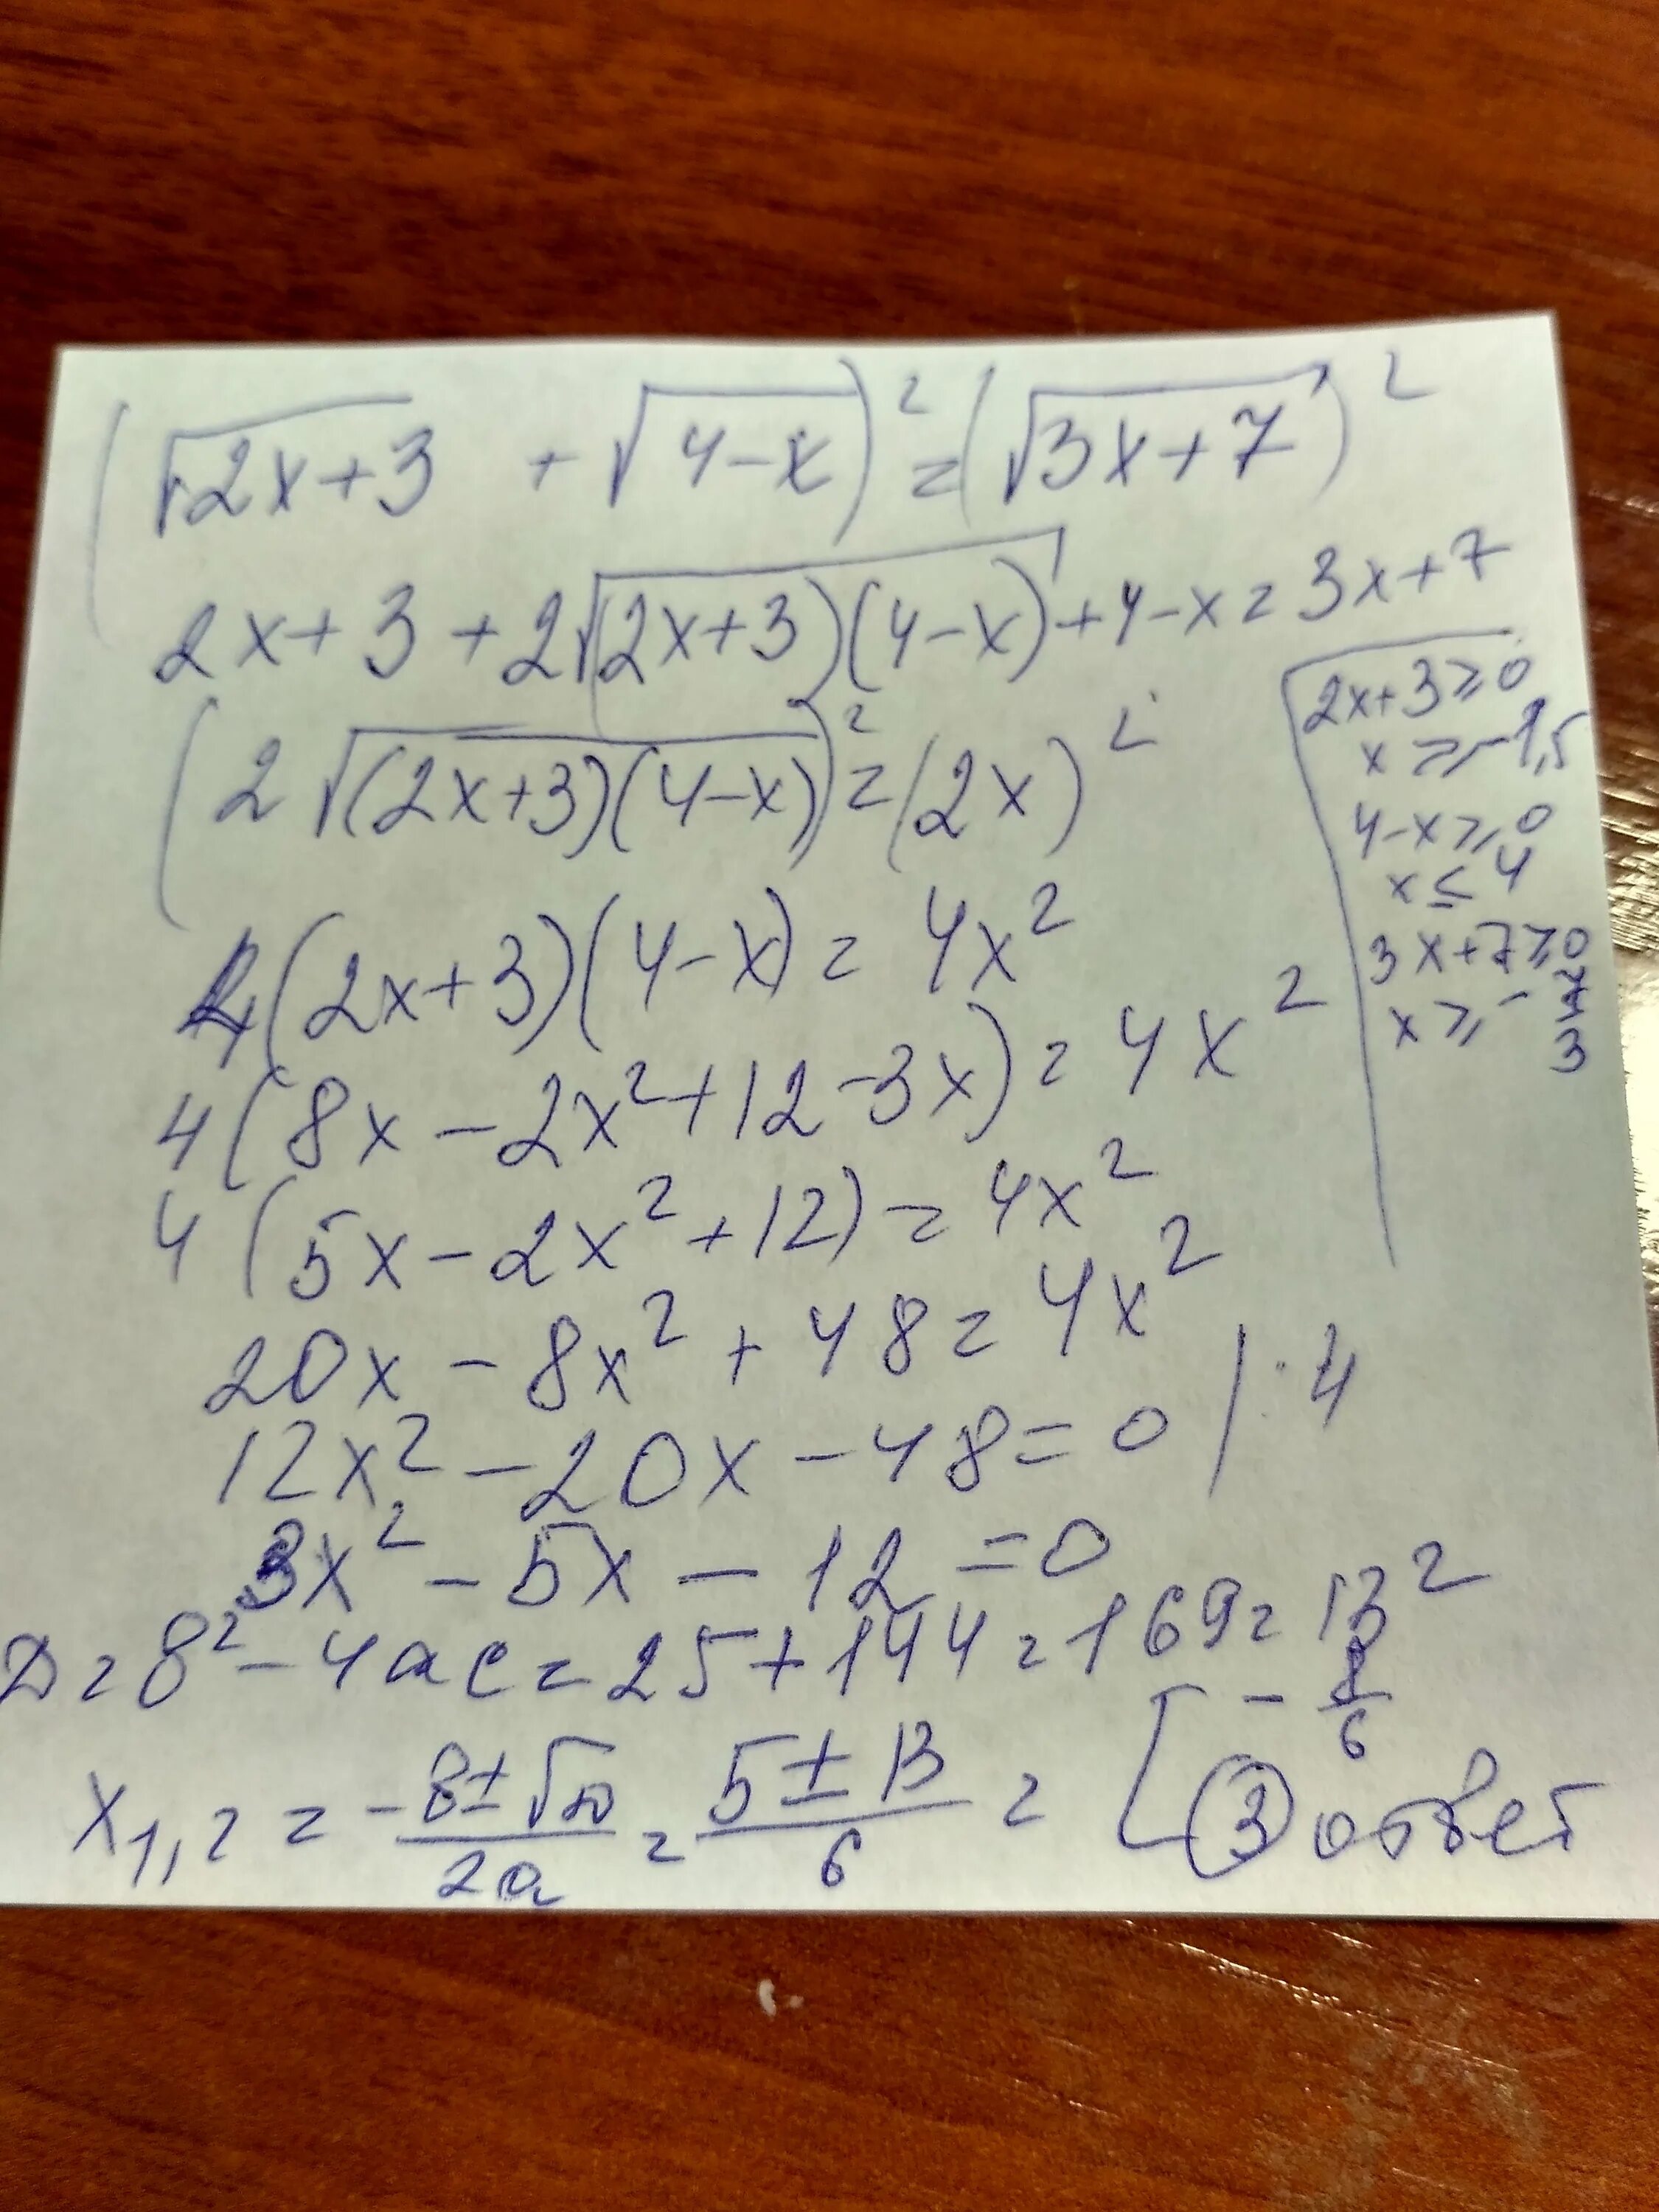 (√2x+3 + √4-x)² = (√3x+7)²
2x+3+2√(2x+3)(4-x)+4-x=3x+7
(2√(2x+3)(4-x))²=(2x)²
4(2x+3)(4-x)=4x²
4(8x-2x²+12-3x)=4x²
4(5x-2x²+12)=4x²
20x-8x²+48=4x²
12x²-20x-48=0 |:4
3x²-5x-12=0
D=в²-4ac=25+144=169=13²
x₁,₂=-в±√D/2a=5±13/6=[-8/6
3 ответ
2x+3≥0
x≥-1,5
4-x≥0
x≤4
3x+7≥0
x≥-7/3